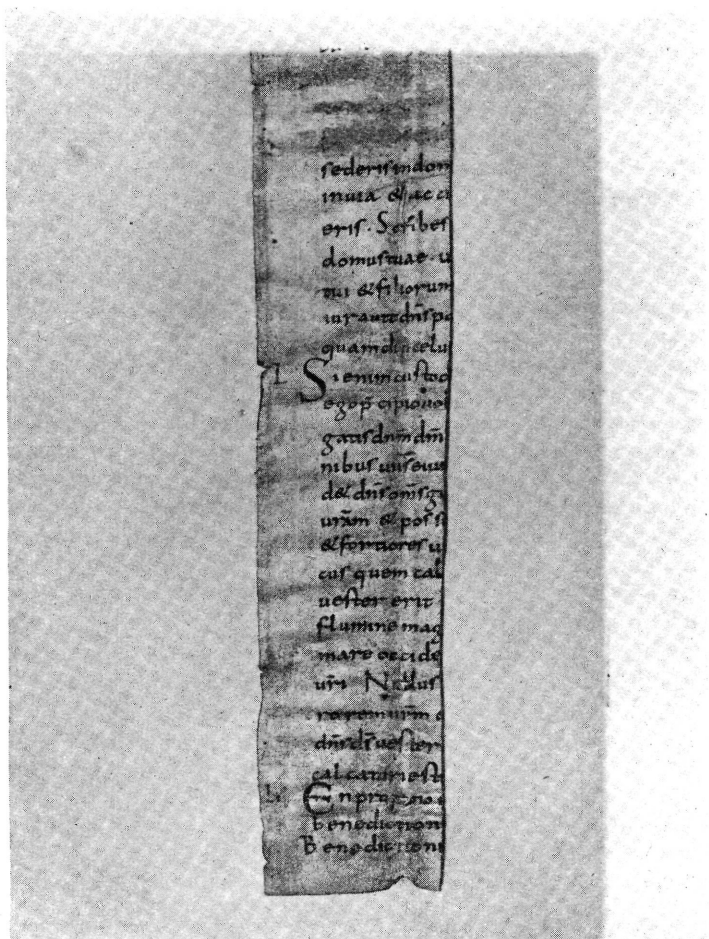 sederis indom
inuia & accu
eris. Scribes
domus tuae. u
tui & filiorum
iurauit dn̄s pa
quamdiu celu
L Si enim custod
ego p̄cipio uob
gatis dn̄m dm̄
nibus uiis eius
d& dn̄s om̄s g
ur̄am & poss
& fortiores u
cus quem cal
uester erit
flumine mag
mare occide
ur̄i Nullus
rorem ur̄m
dn̄s d̄s uester
calcaturi est
LI En propono
Benediction
Benedictioni